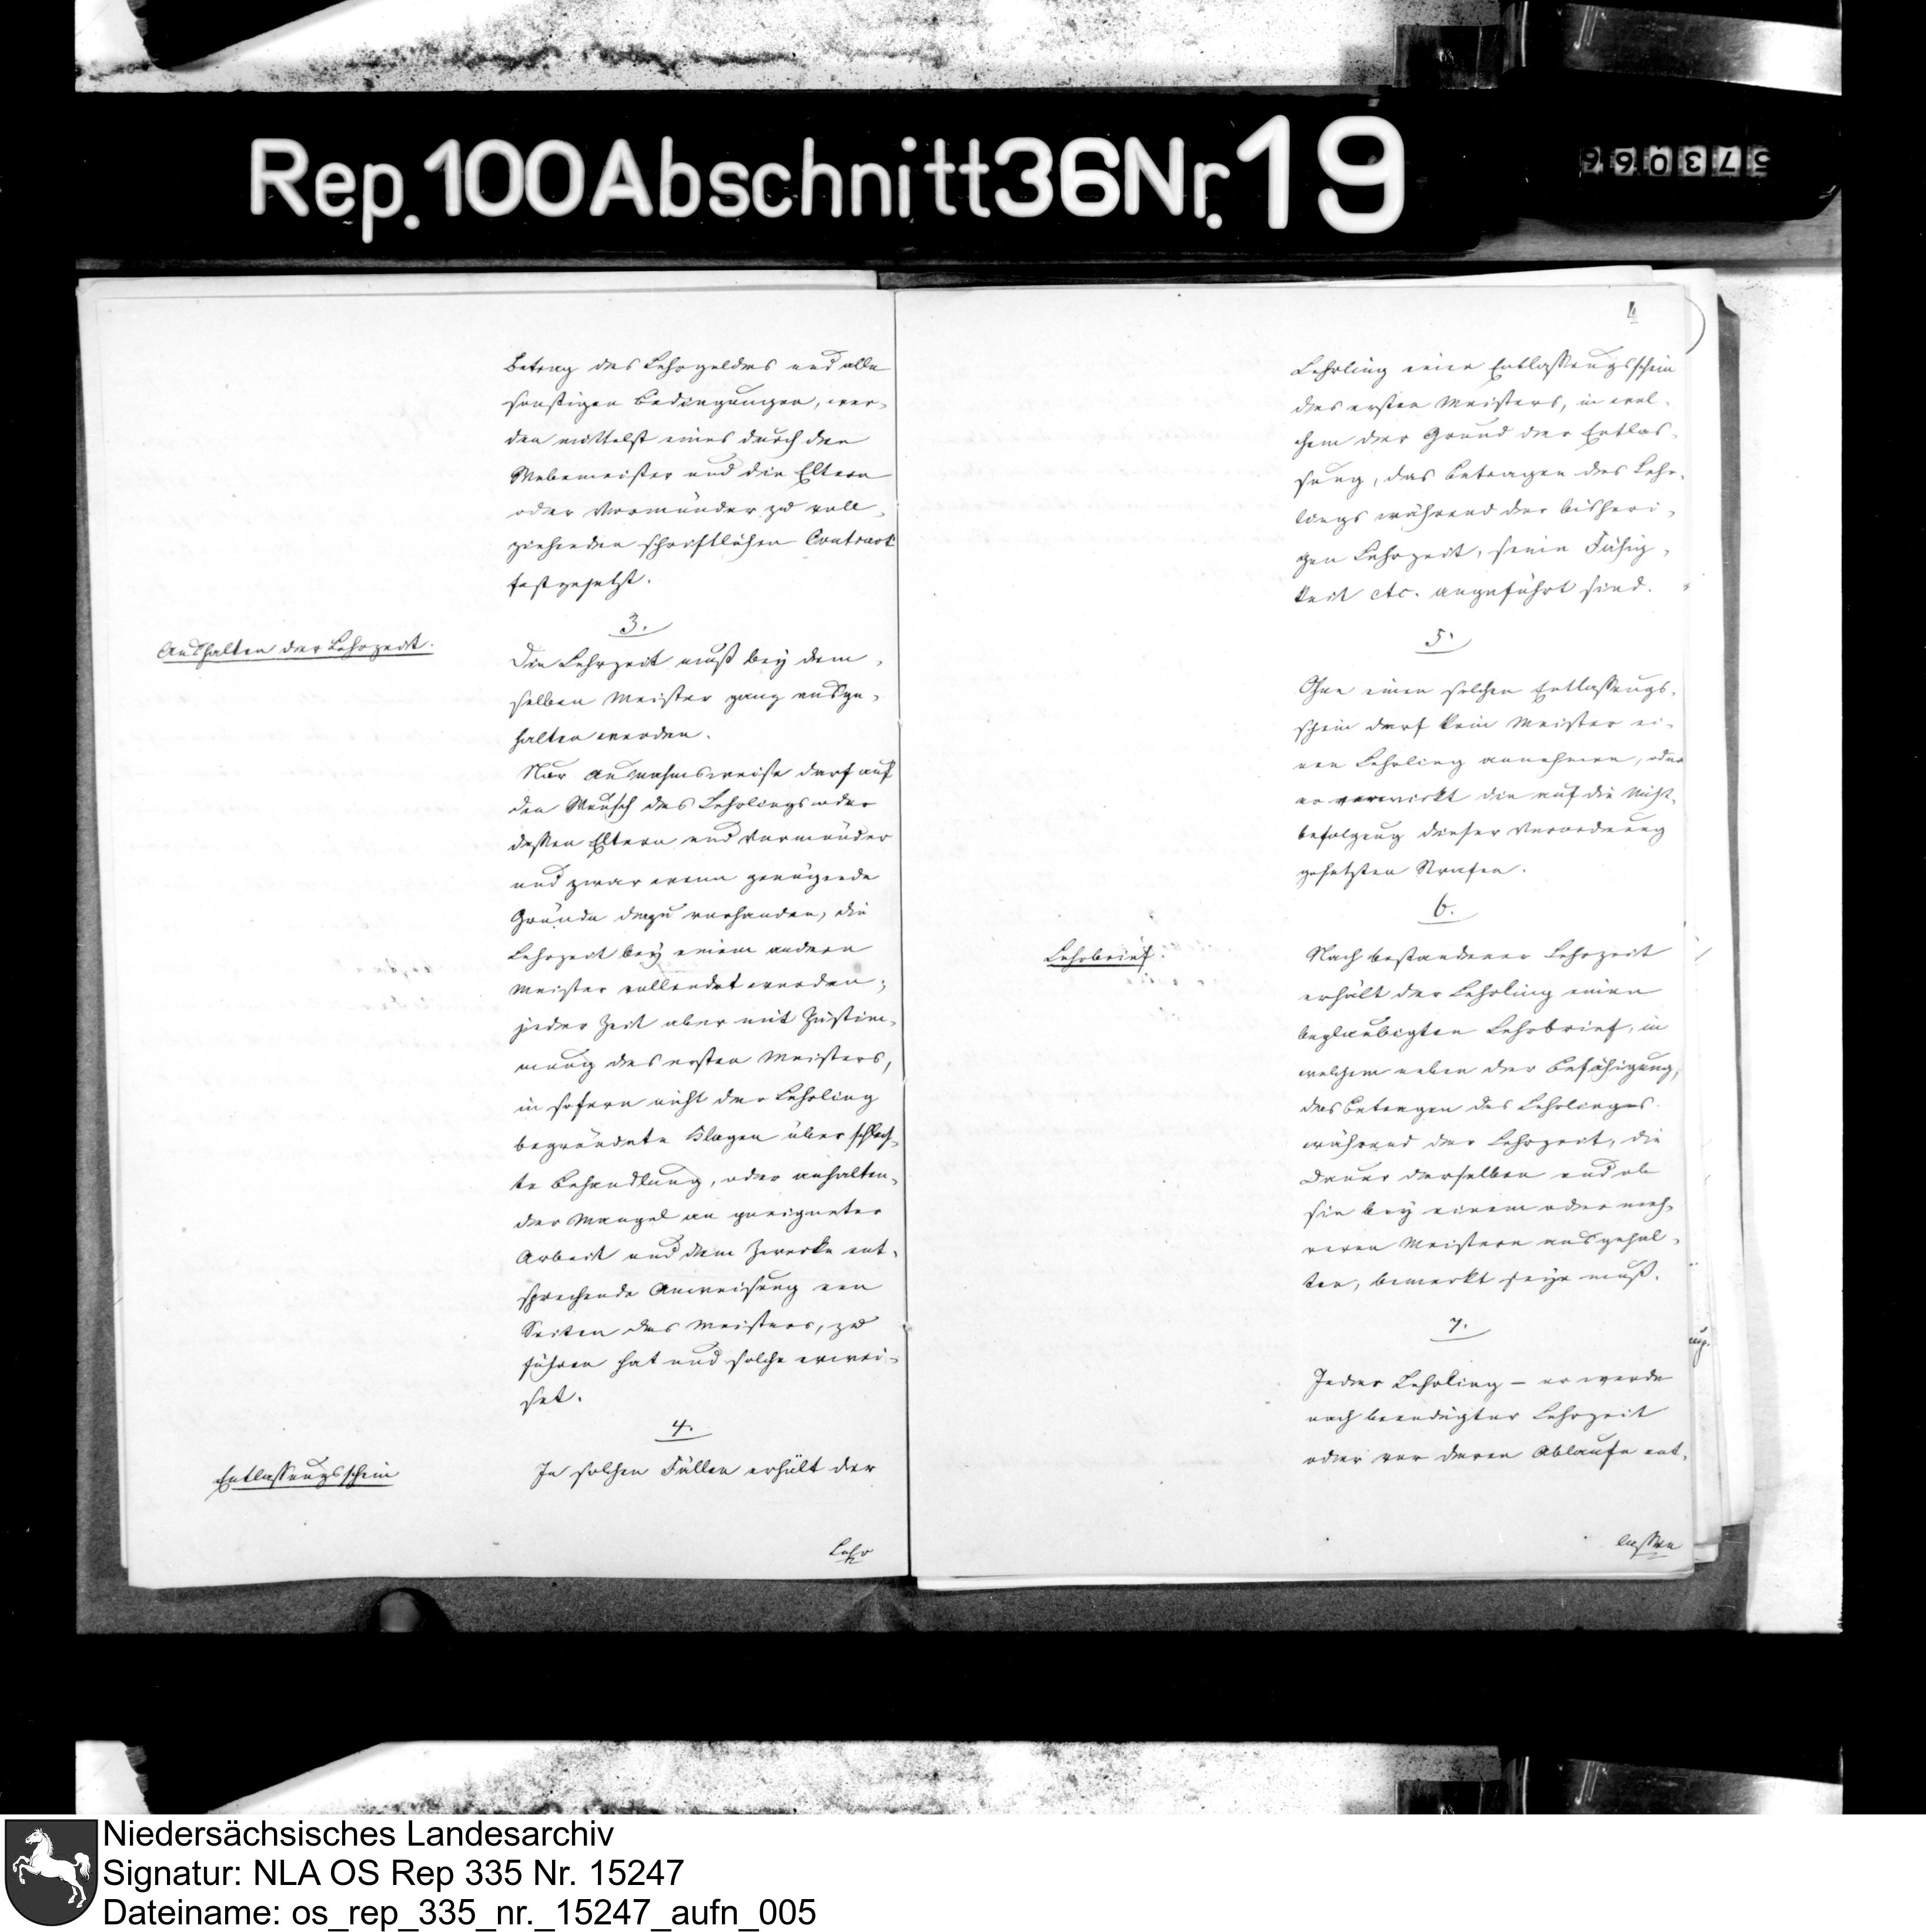 Rep.100Abschnitt36Nr.19
573066
Betrag des Lehrgeldes und alle
sonstigen Bedingungen, wer-
den mittelst eines durch den
Webemeister und die Eltern
oder Vormünder zu voll-
ziehenden schriftlichen Contract
festgesetzt.
3.
Aushalten der Lehrzeit.
Die Lehrzeit muß bey dem-
selben Meister ganz ausge-
halten werden.
Nur ausnahmsweise darf auf
den Wunsch des Lehrlings oder
dessen Eltern und Vormünder
und zwar wenn genügende
Gründe dazu vorhanden, die
Lehrzeit bey einem andern
Meister vollendet werden;
jeder Zeit aber mit Zustim-
mung des ersten Meisters,
in sofern nicht der Lehrling
begründete Klagen über schlech-
te Behandlung, oder anhalten-
der Mangel an geeigneter
Arbeit und dem Zwecke ent-
sprechende Anweisung von
Seiten des Meisters, zu
führen hat und solche erwei-
set.
4.
Entlassungsschein
In solchen Fällen erhält der
Lehr
4
Lehrling einen Entlassungsschein
des ersten Meisters, in wel-
chem der Grund der Entlas-
sung, das Betragen des Lehr-
lings während der bisheri-
gen Lehrzeit, seine Fähig-
keit etc. angeführt sind.
5.
Ohne einen solchen Entlassungs-
schein darf kein Meister ei-
nen Lehrling annehmen, oder
er verwirkt die auf die Nicht-
befolgung dieser Verordnung
gesetzten Strafen.
6.
Lehrbrief.
Nach bestandener Lehrzeit
erhält der Lehrling einen
beglaubigten Lehrbrief, in
welchem neben der Befähigung,
das Betragen des Lehrlinges
während der Lehrzeit, die
Dauer derselben und ob
sie bey einem oder meh-
reren Meistern ausgehal-
ten, bemerkt seyn muß.
7.
Jeder Lehrling – er werde
nach beendigter Lehrzeit
oder vor deren Ablaufe ent-
lassen
Niedersächsisches Landesarchiv
Signatur: NLA OS Rep 335 Nr. 15247
Dateiname: os_rep_335_nr._15247_aufn_005